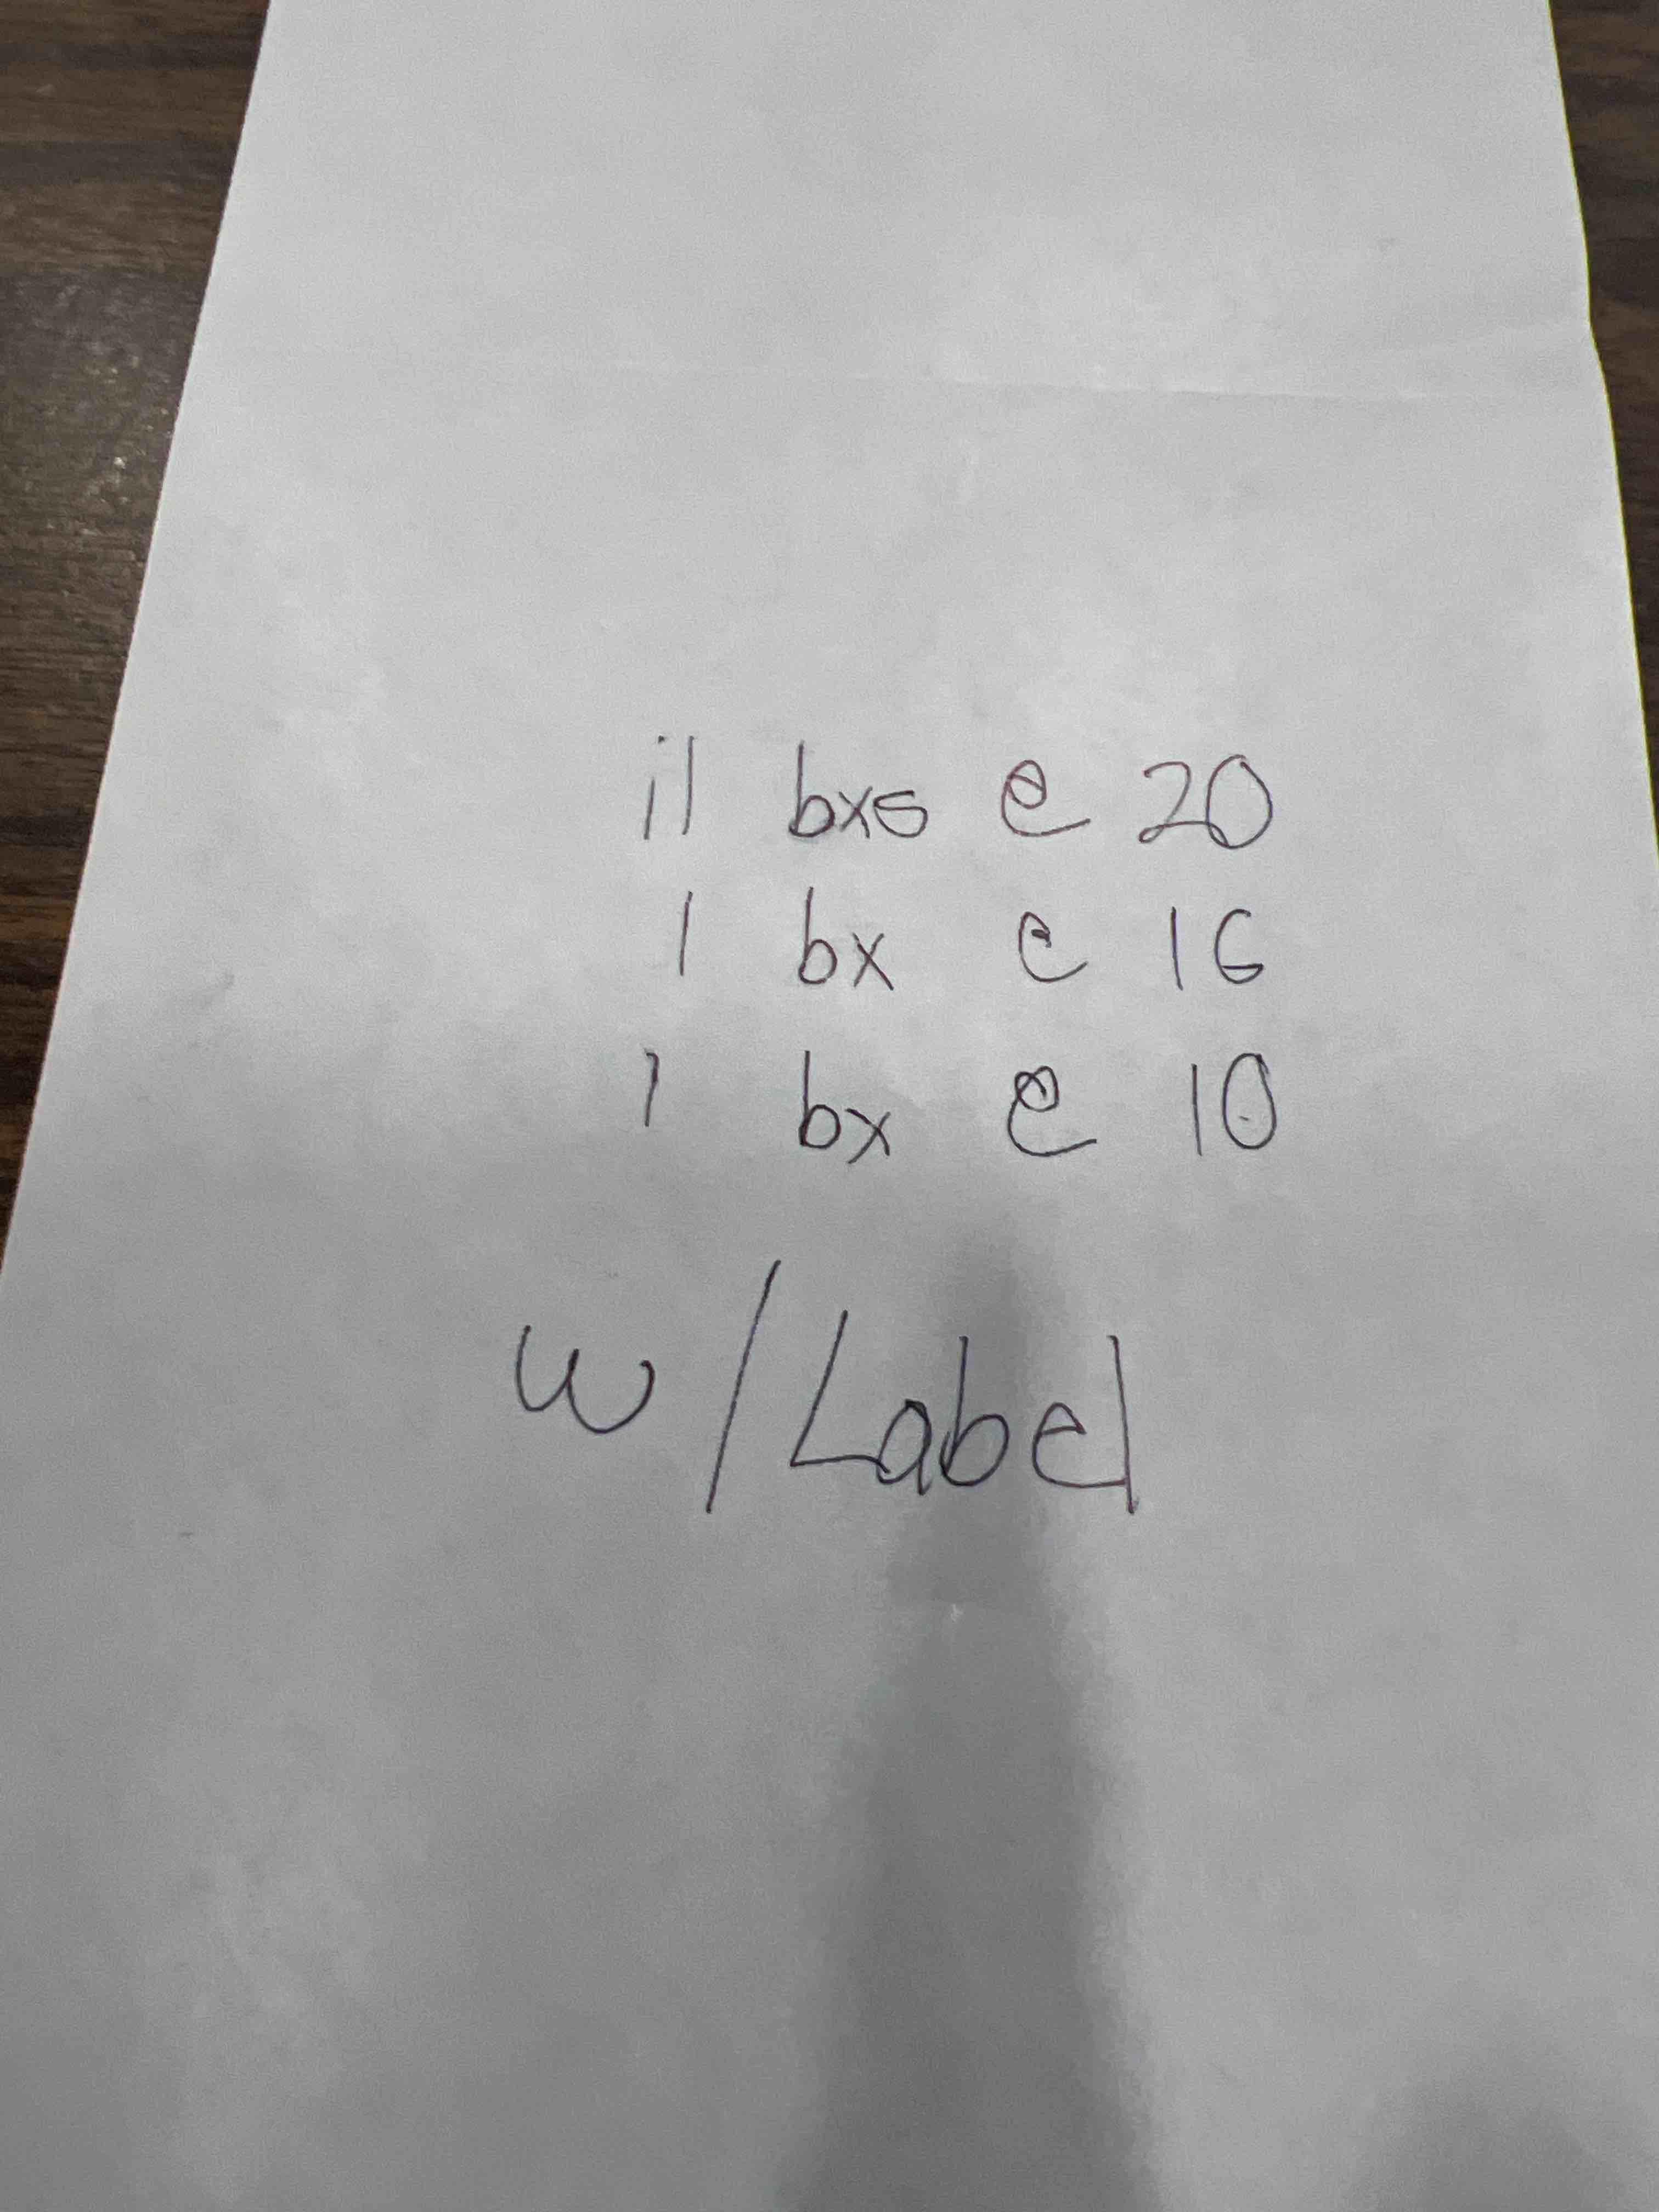 11 bxs @ 20
1 bx @ 16
1 bx @ 10
w/Label